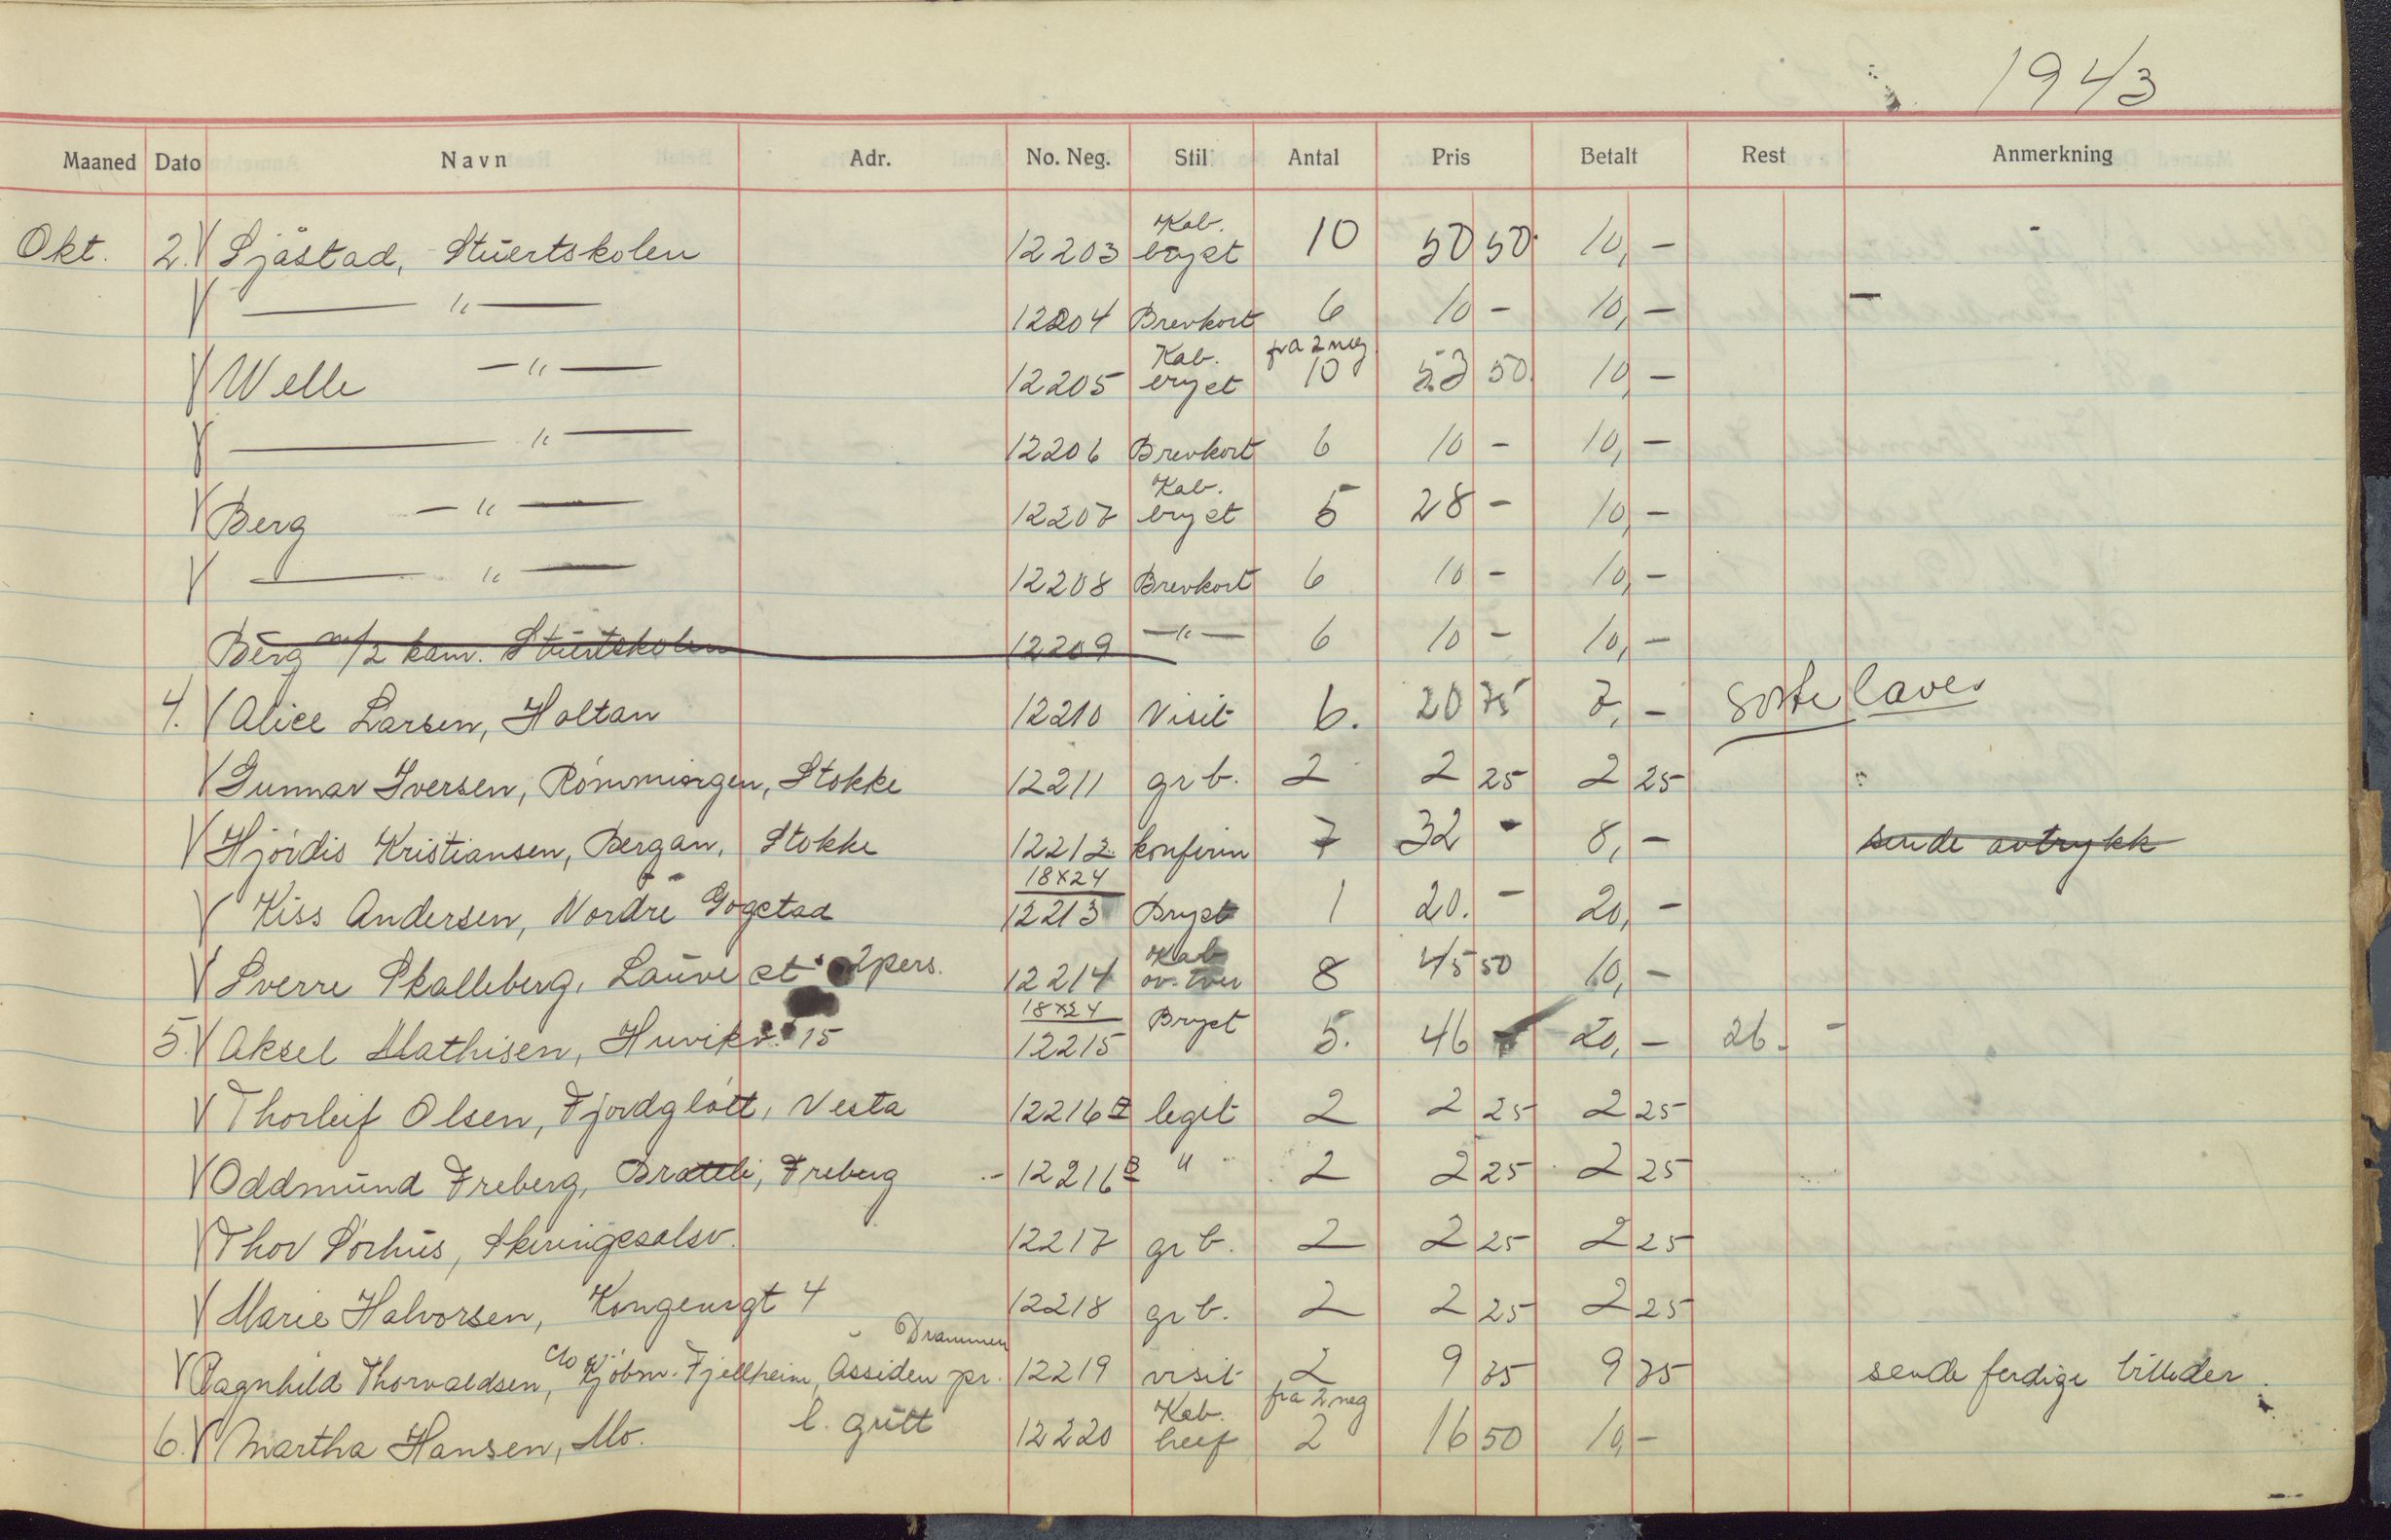 1943
Maaned Dato Navn Adr. No. Neg. Stil Antal Pris Betalt Rest Anmerkning
Okt. 2. Sjåstad, Stuertskolen 12203 Kab. bryst 10 50 50 10,-
— " — 12204 Brevkort 6 10 - 10,-
Welle — " — 12205 Kab. bryst fra 2 neg 10 53 50 10,-
— " — 12206 Brevkort 6 10 - 10,-
Berg — " — 12207 Kab. bryst 5 28 - 10,-
— " — 12208 Brevkort 6 10 - 10,-
Berg m/2 kam. Stuertskolen 12209 — " — 6 10 - 10,-
4. Alice Larsen, Holtan 12210 Visit 6. 20 75 7,- laves
Gunnar Iversen, Stokke 12211 gr b. 2 2 25 2 25
Hjördis Kristiansen, Bergan, Stokke 12212 konfirm 7 32 - 8,- sende avtrykk
Kiss Andersen, Nordre Gogstad 18x24 12213 Bryst 1 20. - 20,-
Sverre Skalleberg, Lauve st 2 pers. 12214 Kab 8 45 50 10,-
5. Aksel Mathisen, Huvikv. 15 18x24 12215 Bryst 5. 46 20,- 26 -
Thorleif Olsen, Fjordglött, Vesta 12216 legit 2 2 25 2 25
Oddmund Freberg, Bratteli, Freberg 12216 B " 2 2 25 2 25
Thor Sörhus, Skiringsalsv. 12217 gr b. 2 2 25 2 25
Marie Halvorsen, Kongensgt 4 12218 gr b. 2 2 25 2 25
Ragnhild Thorvaldsen, c/o Kjöbm. Fjellheim, Assiden pr. Drammen 12219 visit 2 9 75 9 75 sende ferdige billeder.
6. Martha Hansen, Mo. l. gutt 12220 Kab. fra 2 neg 2 16 50 10,-